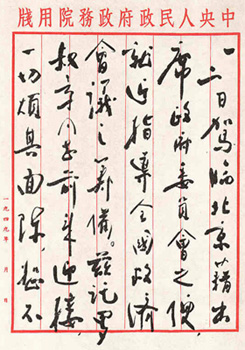 中央人民政府政務院用牋
一二日駕臨北京以藉出
席政府委員會之便，
就近指導全國救濟
會議之籌備。茲託羅
叔章同志前來迎接，
一切煩其面陳，恕不
一九四九年 月 日